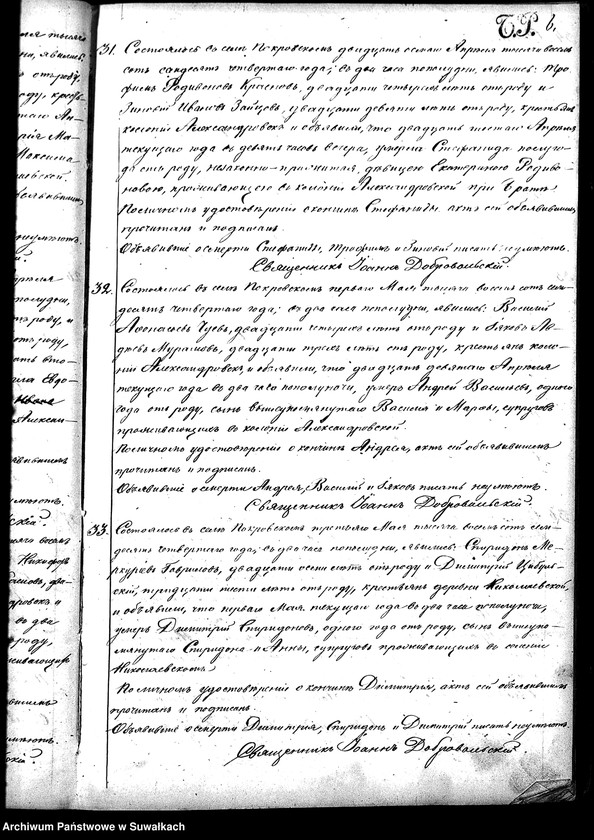 Т.Р. 6.
31. Состоялось въ селѣ Покровскомъ двадцать осьмаго Апрѣля тысяча восемь
сотъ семдесятъ четвертаго года; въ два часа пополудни, явились: Тро-
фимъ Родивоновъ Красновъ, двадцати четырехъ лѣтъ отъ роду и
Зиновій Ивановъ Зайцовъ, двадцати девяти лѣтъ отъ роду, крестьяне
колоніи Александровскъ и объявили, что двадцать шестаго Апрѣля
текущаго года въ девять часовъ вечера, умерла Стефанида полуго-
да отъ роду, незаконно-прижитая дѣвицею Екатериною Родиво-
новою, проживающею въ колоніи Александровской при братѣ.
По личномъ удостовѣреніи о кончинѣ Стефаниды актъ сей объявившимъ
прочитанъ и подписанъ.
Объявившіе о смерти Стефаниды, Трофимъ и Зиновій писать неумѣютъ.
Священникъ Іоаннъ Добровольскій.
32. Состоялось въ селѣ Покровскомъ перваго Мая тысяча восемь сотъ сем-
десятъ четвертаго года; въ два часа пополудни, явились: Василій
Афонасьевъ, двадцати четырехъ лѣтъ отъ роду и Яковъ
двадцати трехъ лѣтъ отъ роду, крестьяне коло-
ніи Александровскъ, и объявили, что двадцать девятаго Апрѣля
текущаго года въ два часа пополуночи, умеръ Андрей Васильевъ, одного
года отъ роду, сынъ вышеупомянутаго Василія и Марѳы, супруговъ
проживающихъ въ колоніи Александровской.
По личномъ удостовѣреніи о кончинѣ Андрея, актъ сей объявившимъ
прочитанъ и подписанъ.
Объявившіе о смерти Андрея, Василій и Яковъ писать неумѣютъ.
Священникъ Іоаннъ Добровольскій.
33. Состоялось въ селѣ Покровскомъ третьяго Мая тысяча восемь сотъ сем-
десятъ четвертаго года; въ два часа пополудни, явились: Спиридонъ Ме-
ркурьевъ Гавриловъ, двадцати осьми лѣтъ отъ роду и Дмитрій
тридцати пяти лѣтъ отъ роду, крестьяне деревни Николаевской,
и объявили, что перваго Мая текущаго года въ два часа пополуночи,
умеръ Дмитрій Спиридоновъ, одного года отъ роду, сынъ вышеупо-
мянутаго Спиридона и Анны, супруговъ проживающихъ въ селеніи
Николаевскомъ.
По личномъ удостовѣреніи о кончинѣ Димитрія, актъ сей объявившимъ
прочитанъ и подписанъ.
Объявившіе о смерти Димитрія, Спиридонъ и Димитрій писать неумѣютъ.
Священникъ Іоаннъ Добровольскій.
Archiwum Państwowe w Suwałkach